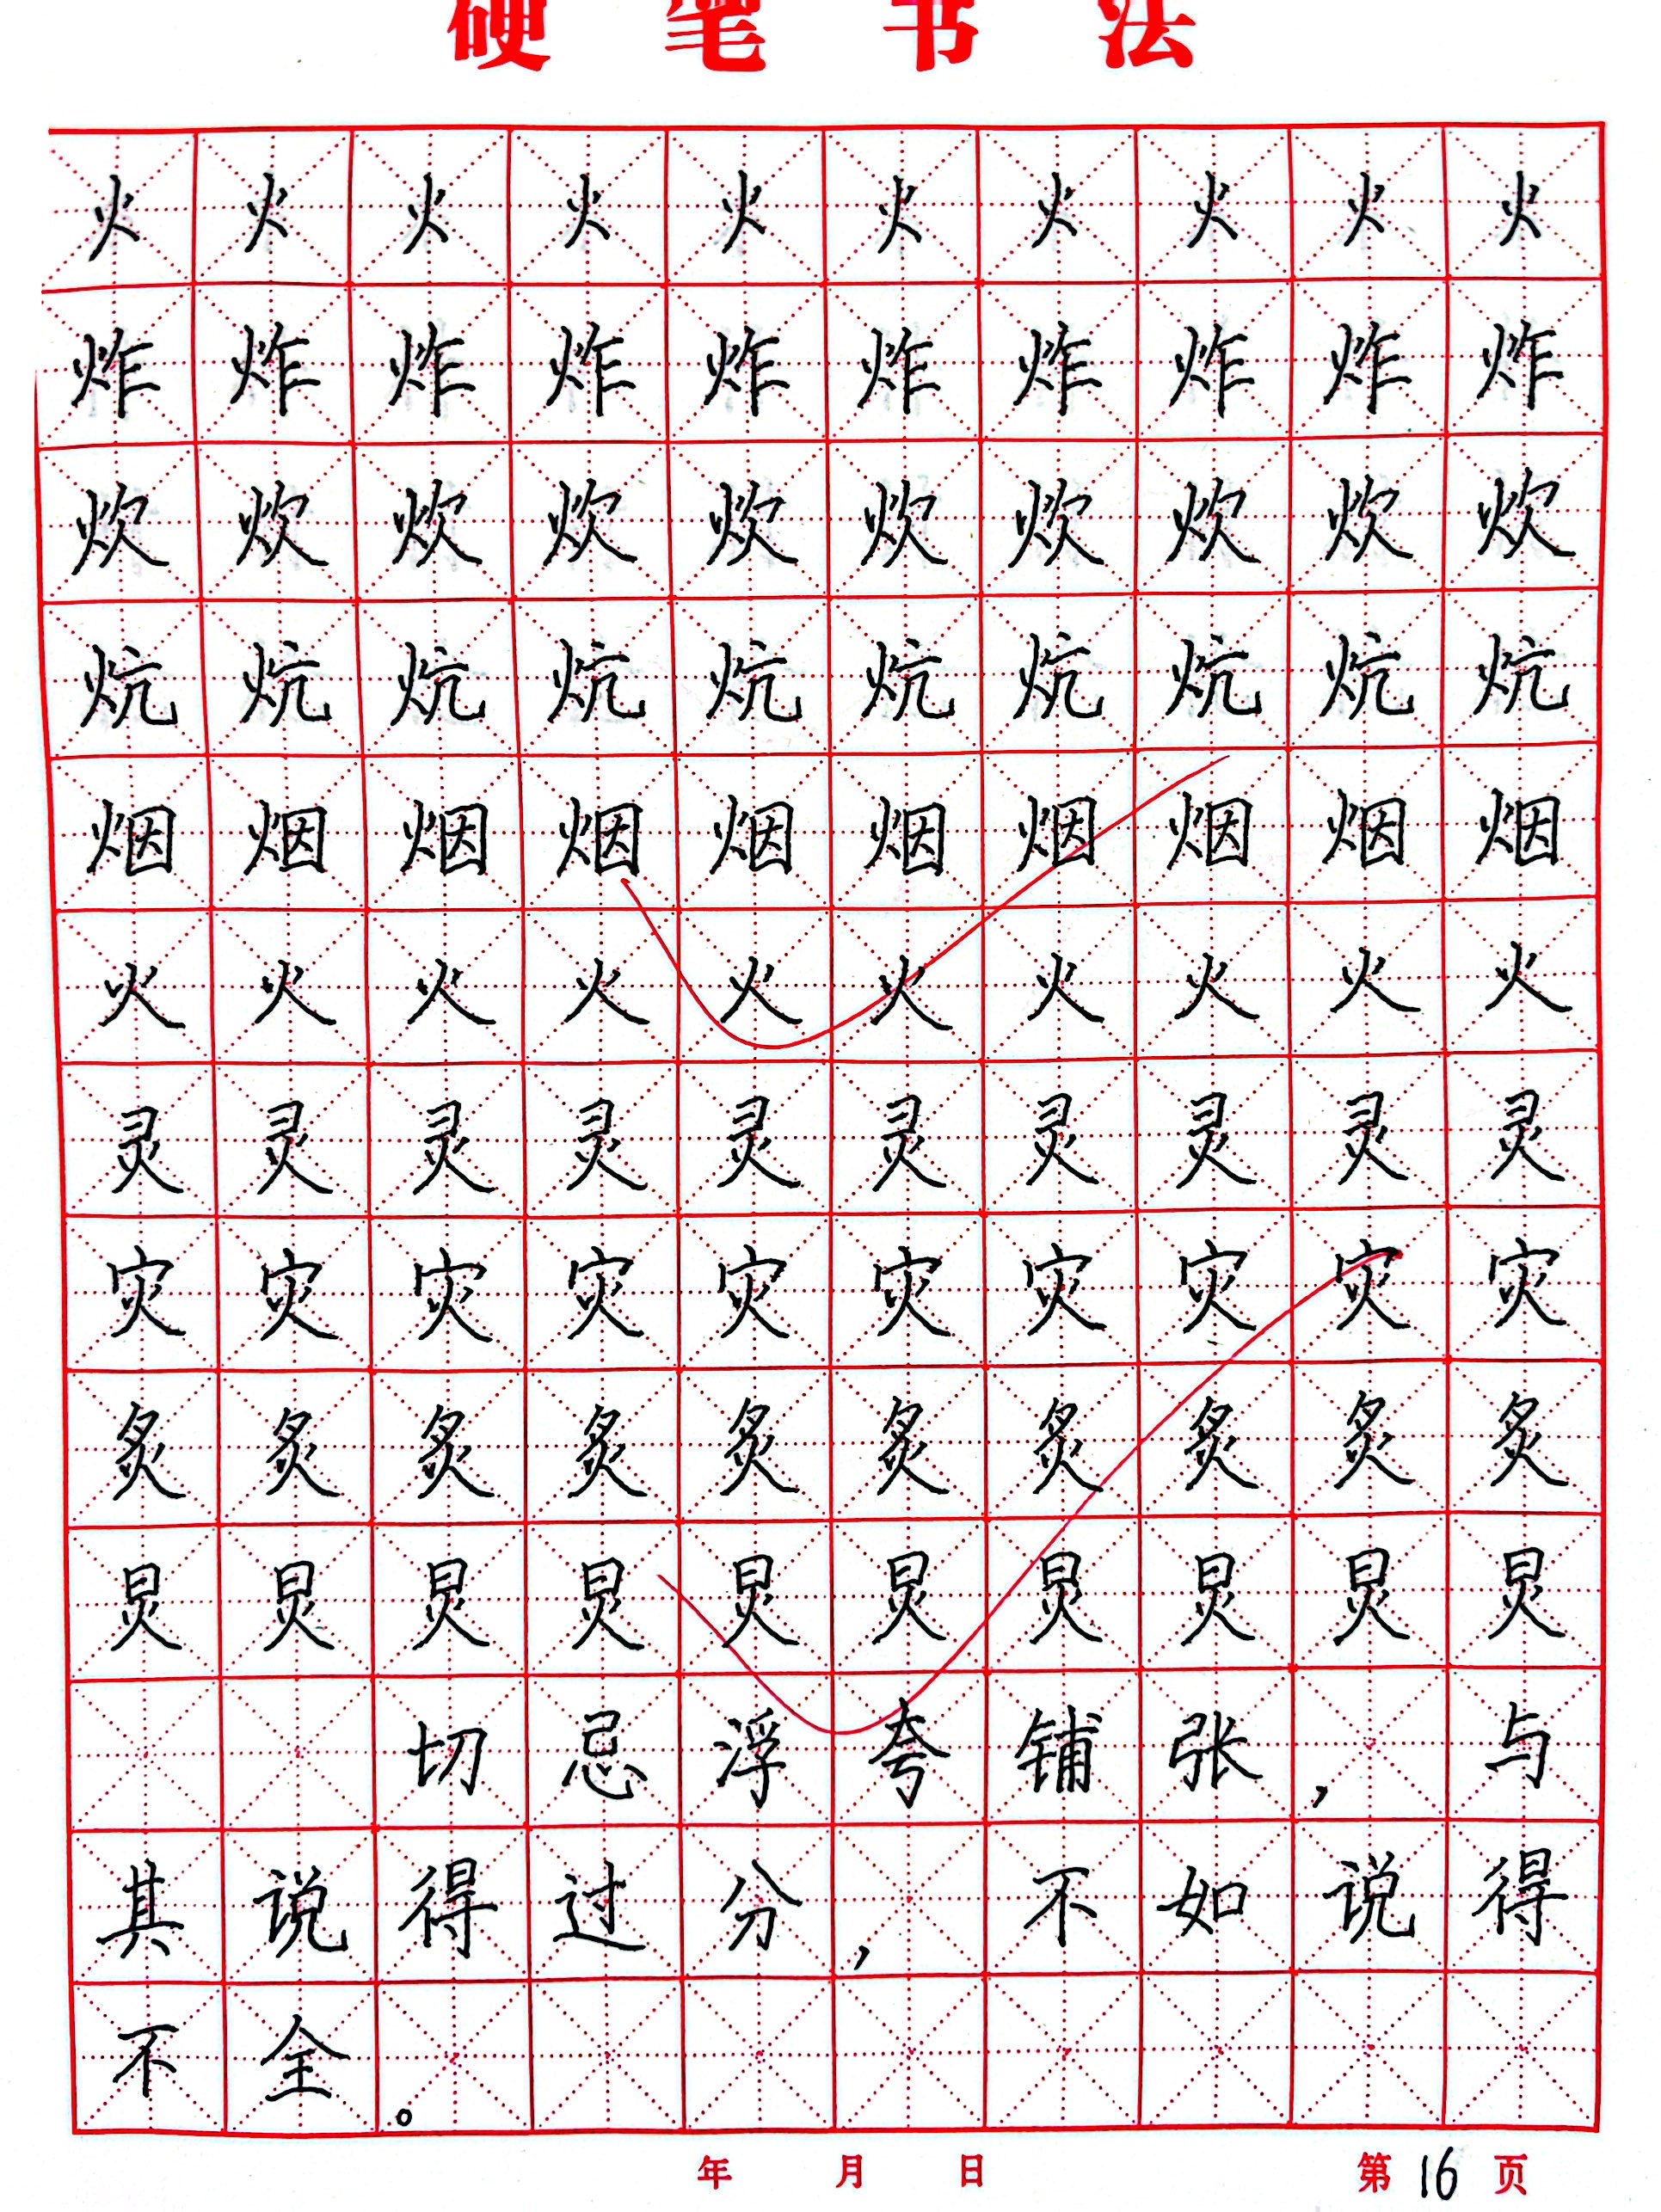 硬笔书法
火火火火火火火火火火
炸炸炸炸炸炸炸炸炸炸
炊炊炊炊炊炊炊炊炊炊
炕炕炕炕炕炕炕炕炕炕
烟烟烟烟烟烟烟烟烟烟
火火火火火火火火火火
灵灵灵灵灵灵灵灵灵灵
灾灾灾灾灾灾灾灾灾灾
炙炙炙炙炙炙炙炙炙炙
炅炅炅炅炅炅炅炅炅炅
切忌浮夸铺张，与
其说得过分，不如说得
不全。
年 月 日 第16页